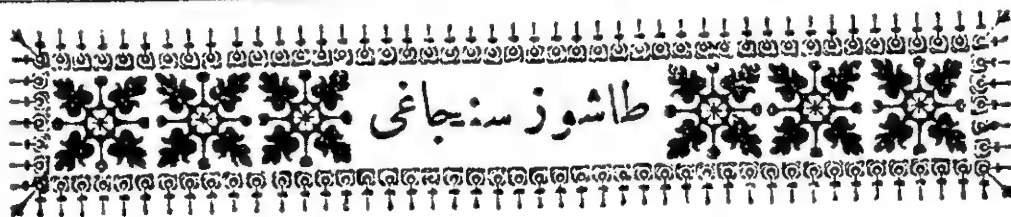 طاشوز سنجاغی